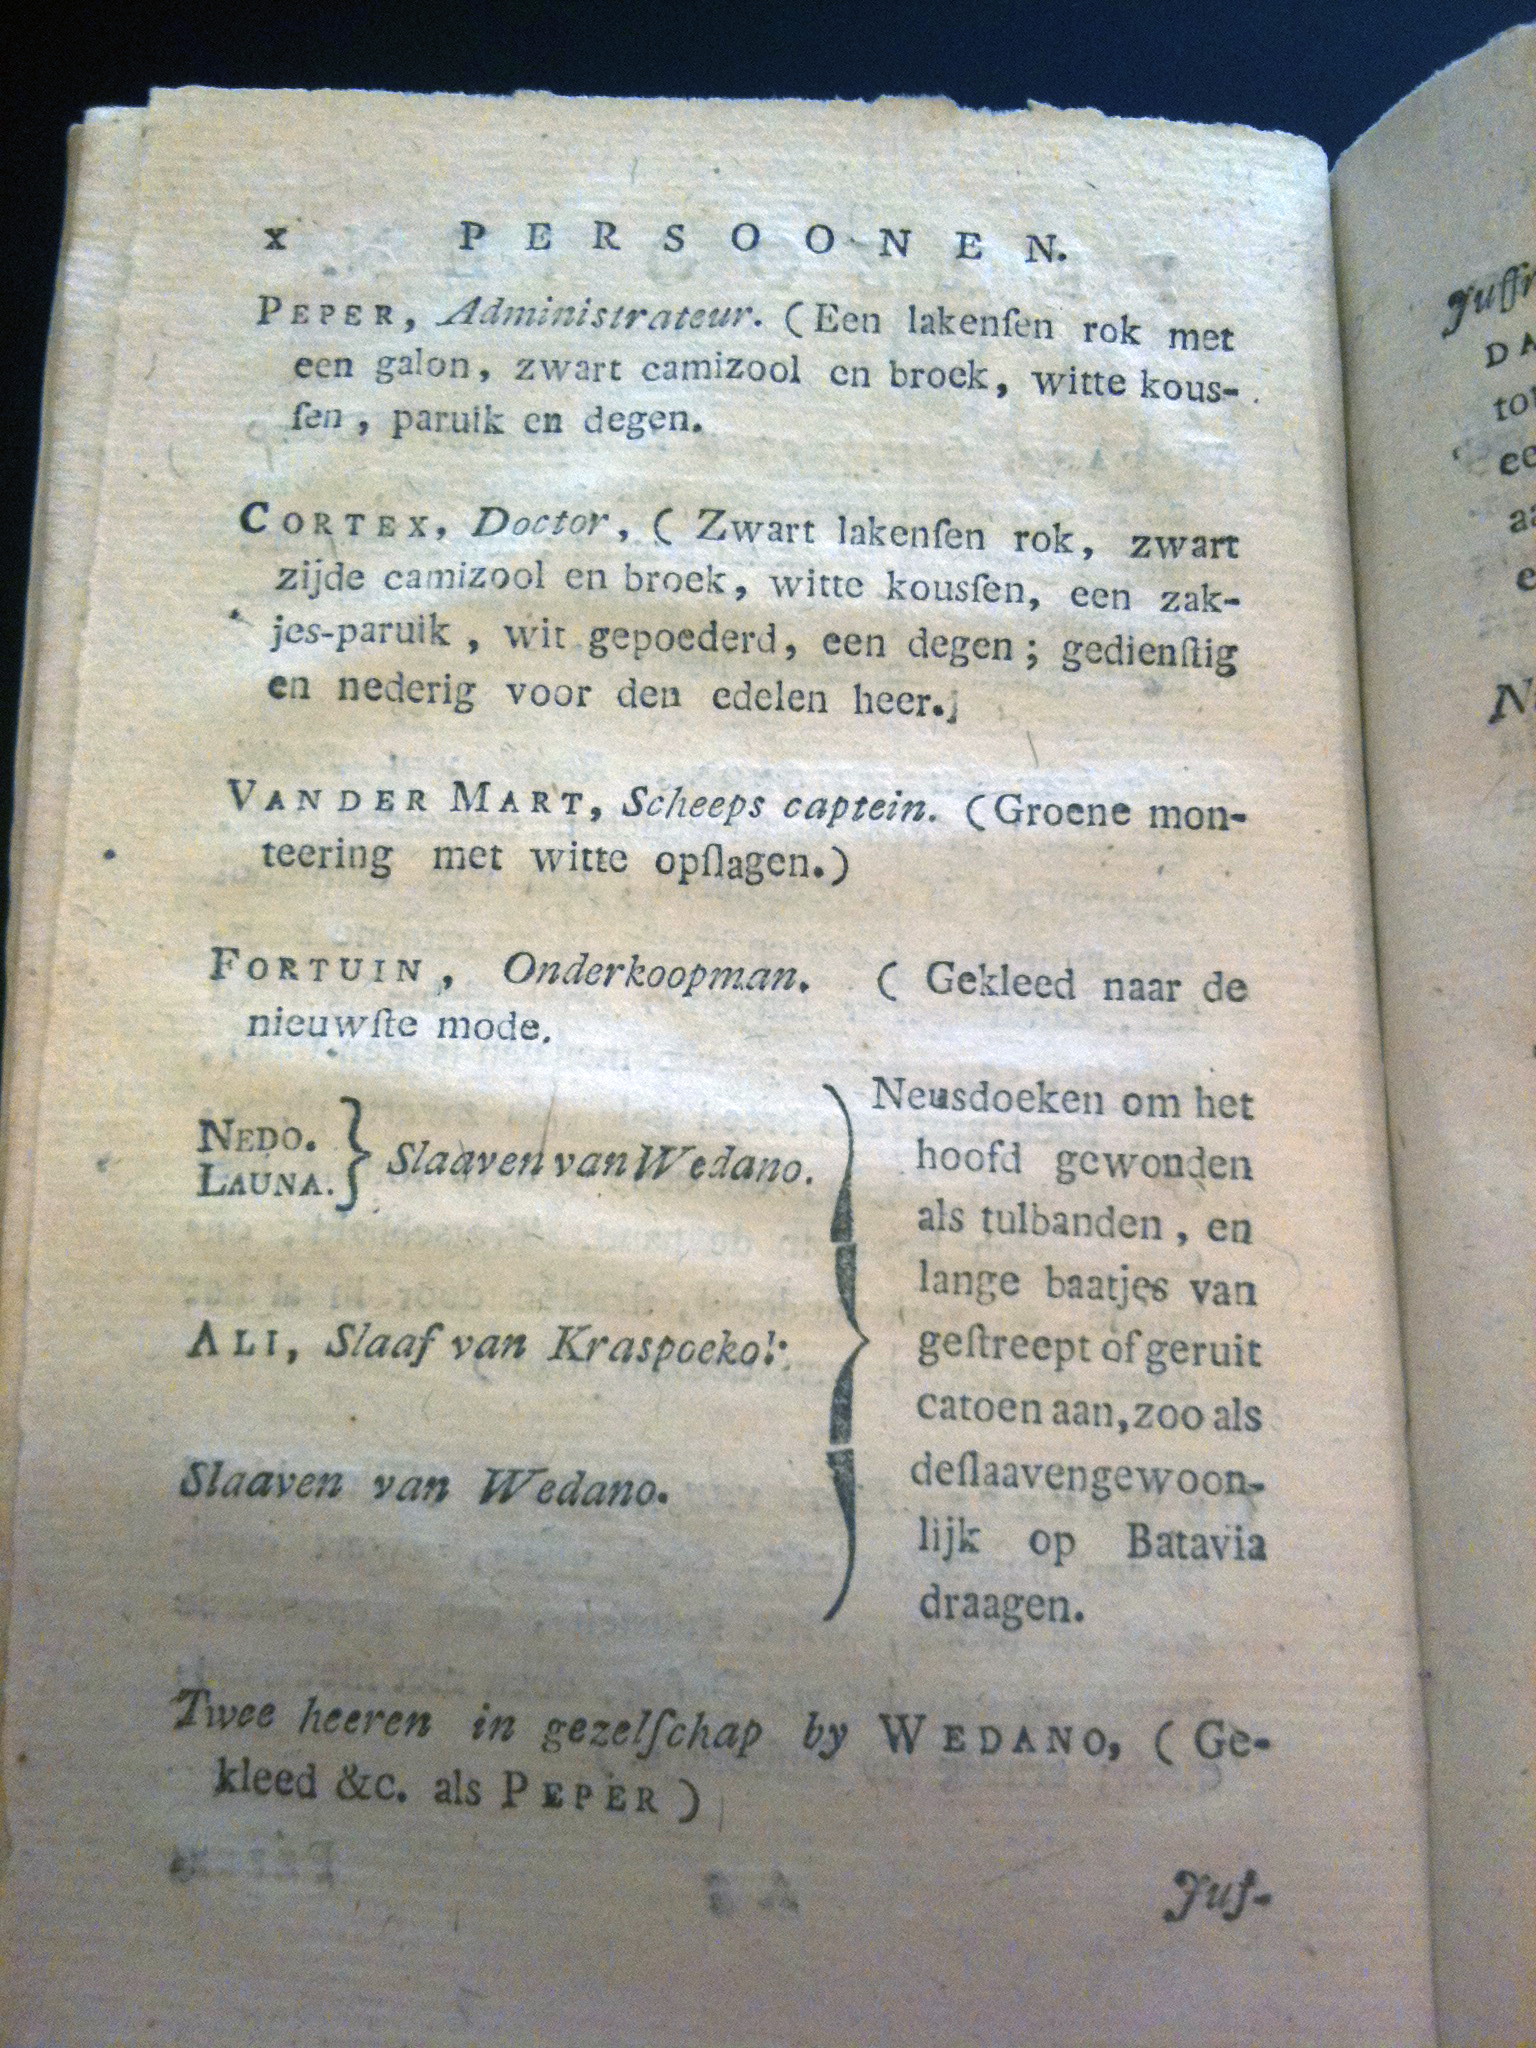 x PERSOONEN.
PEPER, Administrateur. (Een lakenſen rok met
een galon, zwart camizool en broek, witte kous-
ſen, paruik en degen.
CORTEX, Doctor, ( Zwart lakenſen rok, zwart
zijde camizool en broek, witte kousſen, een zak-
jes-paruik, wit gepoederd, een degen; gedienſtig
en nederig voor den edelen heer.
VANDER MART, Scheeps captein. (Groene mon-
teering met witte opſlagen.)
FORTUIN, Onderkoopman. ( Gekleed naar de
nieuwſte mode.
NEDO.
LAUNA.
Slaaven van Wedano.
ALI, Slaaf van Kraspoekol.
Slaaven van Wedano.
Neusdoeken om het
hoofd gewonden
als tulbanden, en
lange baatjes van
geſtreept of geruit
catoen aan, zoo als
de ſlaaven gewoon-
lijk op Batavia
draagen.
Twee heeren in gezelſchap by WEDANO, ( Ge-
kleed &c. als PEPER )
Juf-
Juffr
DA
ee